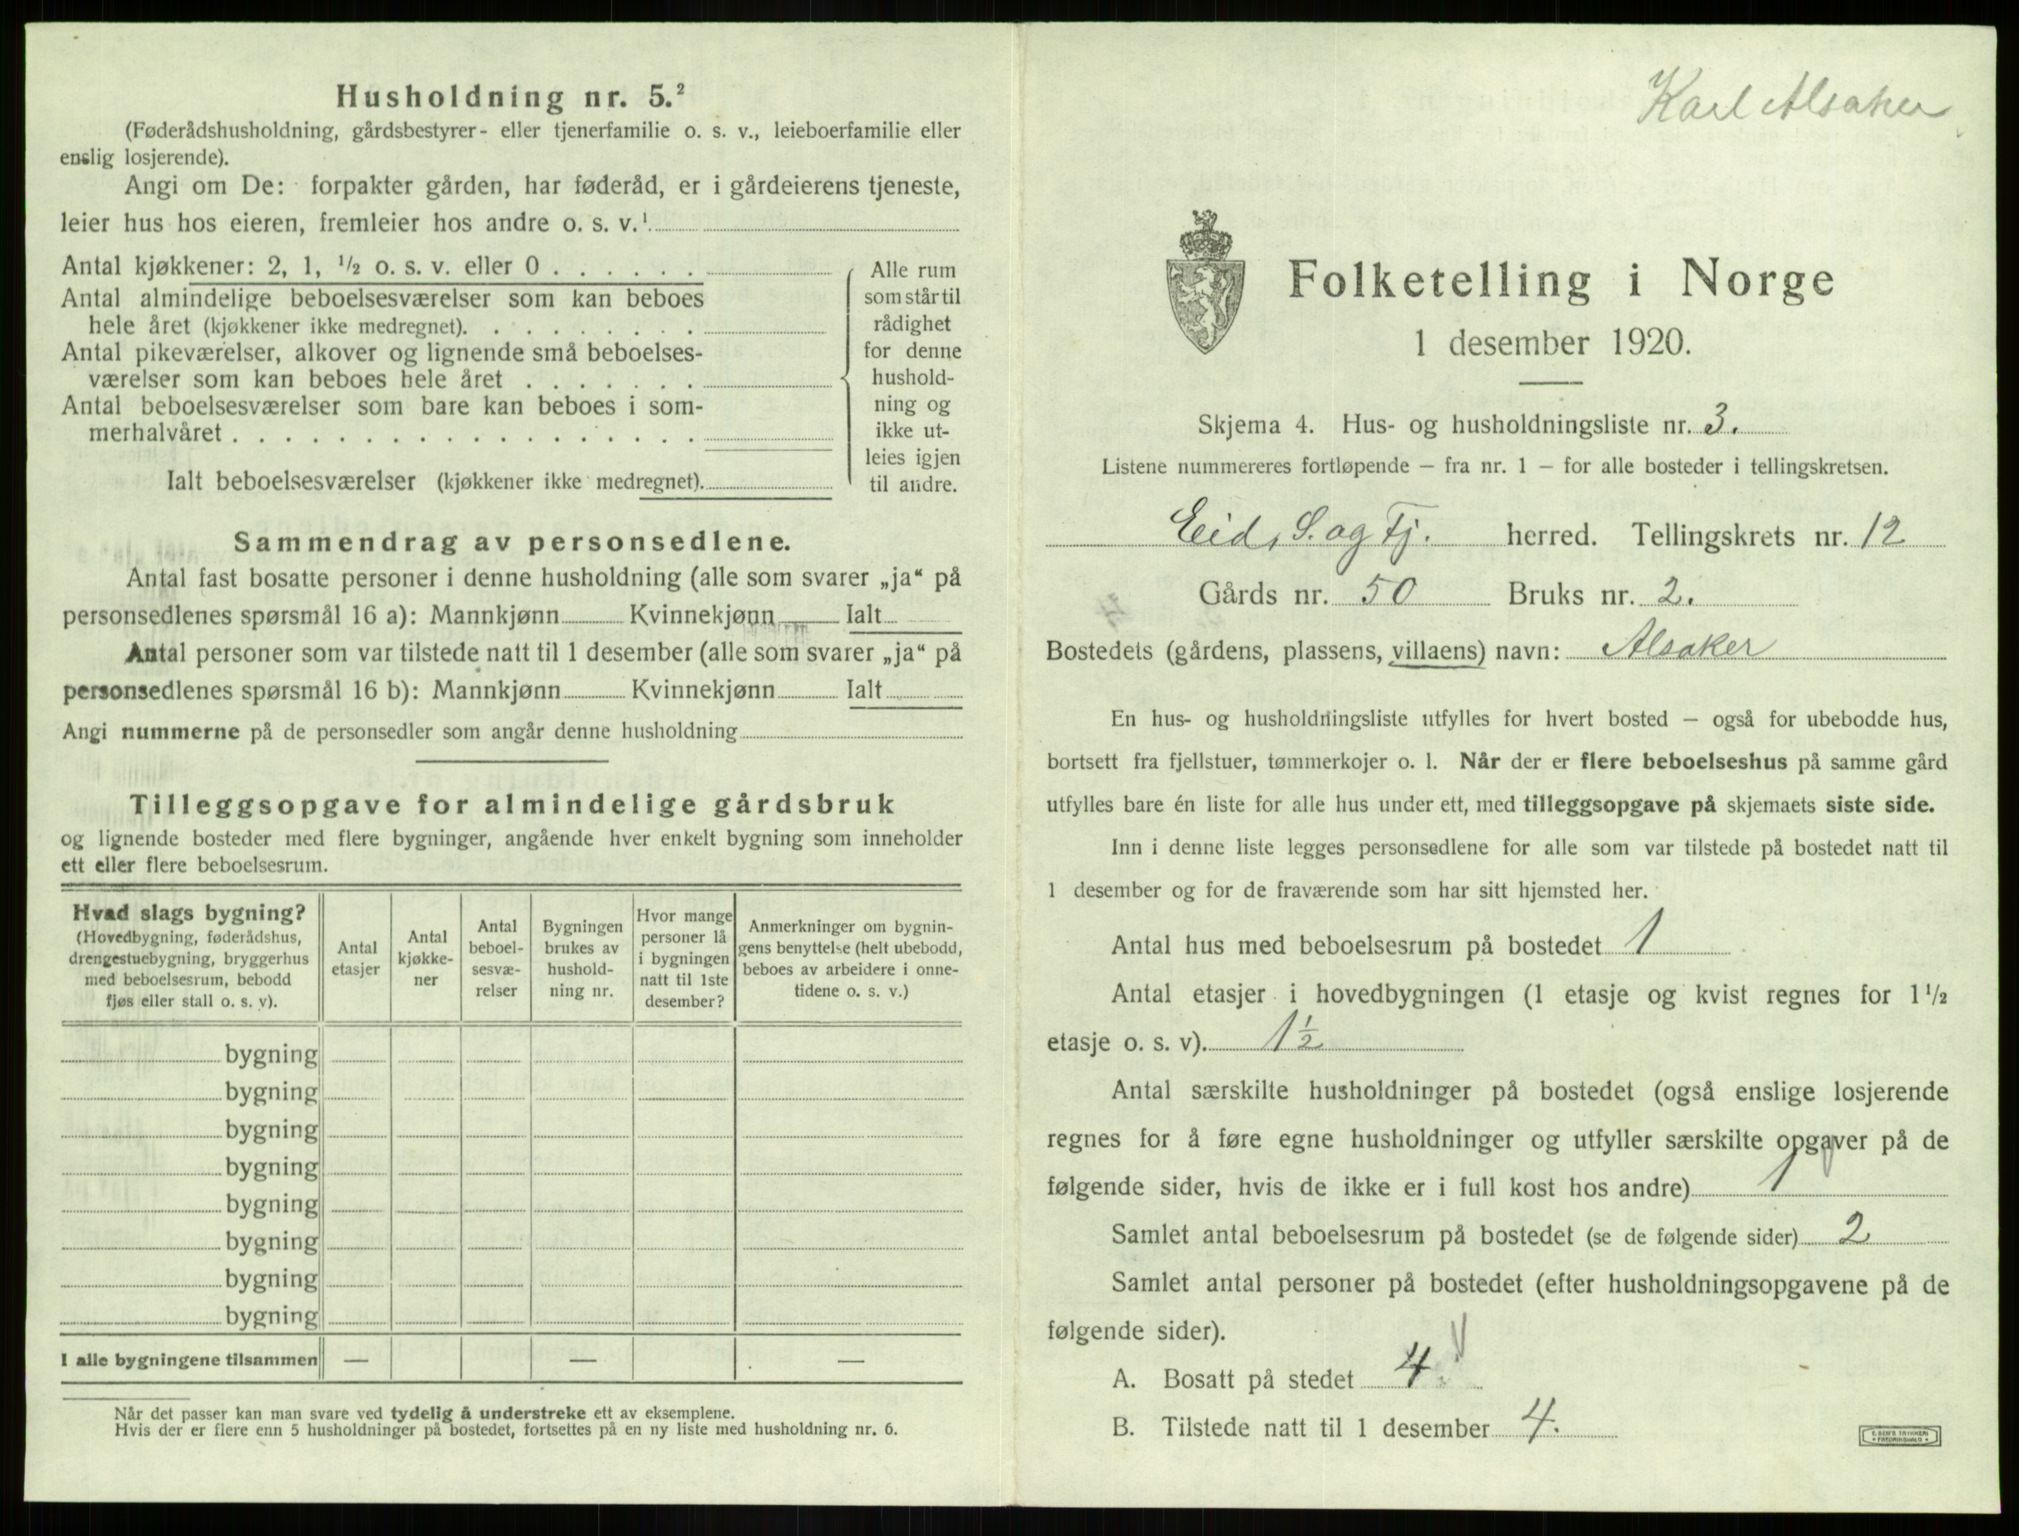 Husholdning nr. 5.²
(Føderådshusholdning, gårdsbestyrer- eller tjenerfamilie o. s. v., leieboerfamilie eller
enslig losjerende).
Angi om De: forpakter gården, har føderåd, er i gårdeierens tjeneste,
leier hus hos eieren, fremleier hos andre o. s. v.¹
Antal kjøkkener: 2, 1, ½ o. s. v. eller 0 . . . . . .
Antal almindelige beboelsesværelser som kan beboes
hele året (kjøkkener ikke medregnet). . . . . . . . .
Antal pikeværelser, alkover og lignende små beboelses-
værelser som kan beboes hele året . . . . . . .
Antal beboelsesværelser som bare kan beboes i som-
merhalvåret . . . . . . . . . . . . . . . . . .
Ialt beboelsesværelser (kjøkkener ikke medregnet).
Alle rum
som står til
rådighet
for denne
hushold-
ning og
ikke ut-
leies igjen
til andre.
Sammendrag av personsedlene.
Antal fast bosatte personer i denne husholdning (alle som svarer „ja“ på
personsedlenes spørsmål 16 a): Mannkjønn Kvinnekjønn Ialt
Antal personer som var tilstede natt til 1 desember (alle som svarer „ja“ på
personsedlenes spørsmål 16 b): Mannkjønn Kvinnekjønn Ialt
Angi nummerne på de personsedler som angår denne husholdning
Tilleggsopgave for almindelige gårdsbruk
og lignende bosteder med flere bygninger, angående hver enkelt bygning som inneholder
ett eller flere beboelsesrum.
Hvad slags bygning?
(Hovedbygning, føderådshus,
drengestuebygning, bryggerhus
med beboelsesrum, bebodd
fjøs eller stall o. s. v).
Antal
etasjer
Antal
kjøkke-
ner
Antal
beboel-
sesvæ-
relser
Bygningen
brukes av
hushold-
ning nr.
Hvor mange
personer lå
i bygningen
natt til 1ste
desember?
Anmerkninger om bygnin-
gens benyttelse (helt ubebodd,
beboes av arbeidere i onne-
tidene o. s. v.)
bygning
bygning
bygning
bygning
bygning
bygning
bygning
bygning
I alle bygningene tilsammen — — —
Når det passer kan man svare ved tydelig å understreke ett av eksemplene.
Hvis der er flere enn 5 husholdninger på bostedet, fortsettes på en ny liste med husholdning nr. 6.
Karl Alsaker
Folketelling i Norge
1 desember 1920.
Skjema 4. Hus- og husholdningsliste nr. 3.
Listene nummereres fortløpende – fra nr. 1 – for alle bosteder i tellingskretsen.
Eid, S. og Fj. herred. Tellingskrets nr. 12
Gårds nr. 50 Bruks nr. 2.
Bostedets (gårdens, plassens, villaens) navn: Alsaker
En hus- og husholdningsliste utfylles for hvert bosted – også for ubebodde hus,
bortsett fra fjellstuer, tømmerkojer o. l. Når der er flere beboelseshus på samme gård
utfylles bare én liste for alle hus under ett, med tilleggsopgave på skjemaets siste side.
Inn i denne liste legges personsedlene for alle som var tilstede på bostedet natt til
1 desember og for de fraværende som har sitt hjemsted her.
Antal hus med beboelsesrum på bostedet 1
Antal etasjer i hovedbygningen (1 etasje og kvist regnes for 1½
etasje o. s. v). 1½
Antal særskilte husholdninger på bostedet (også enslige losjerende
regnes for å føre egne husholdninger og utfyller særskilte opgaver på de
følgende sider, hvis de ikke er i full kost hos andre) 1
Samlet antal beboelsesrum på bostedet (se de følgende sider) 2
Samlet antal personer på bostedet (efter husholdningsopgavene på de
følgende sider).
A. Bosatt på stedet 4.
B. Tilstede natt til 1 desember 4.